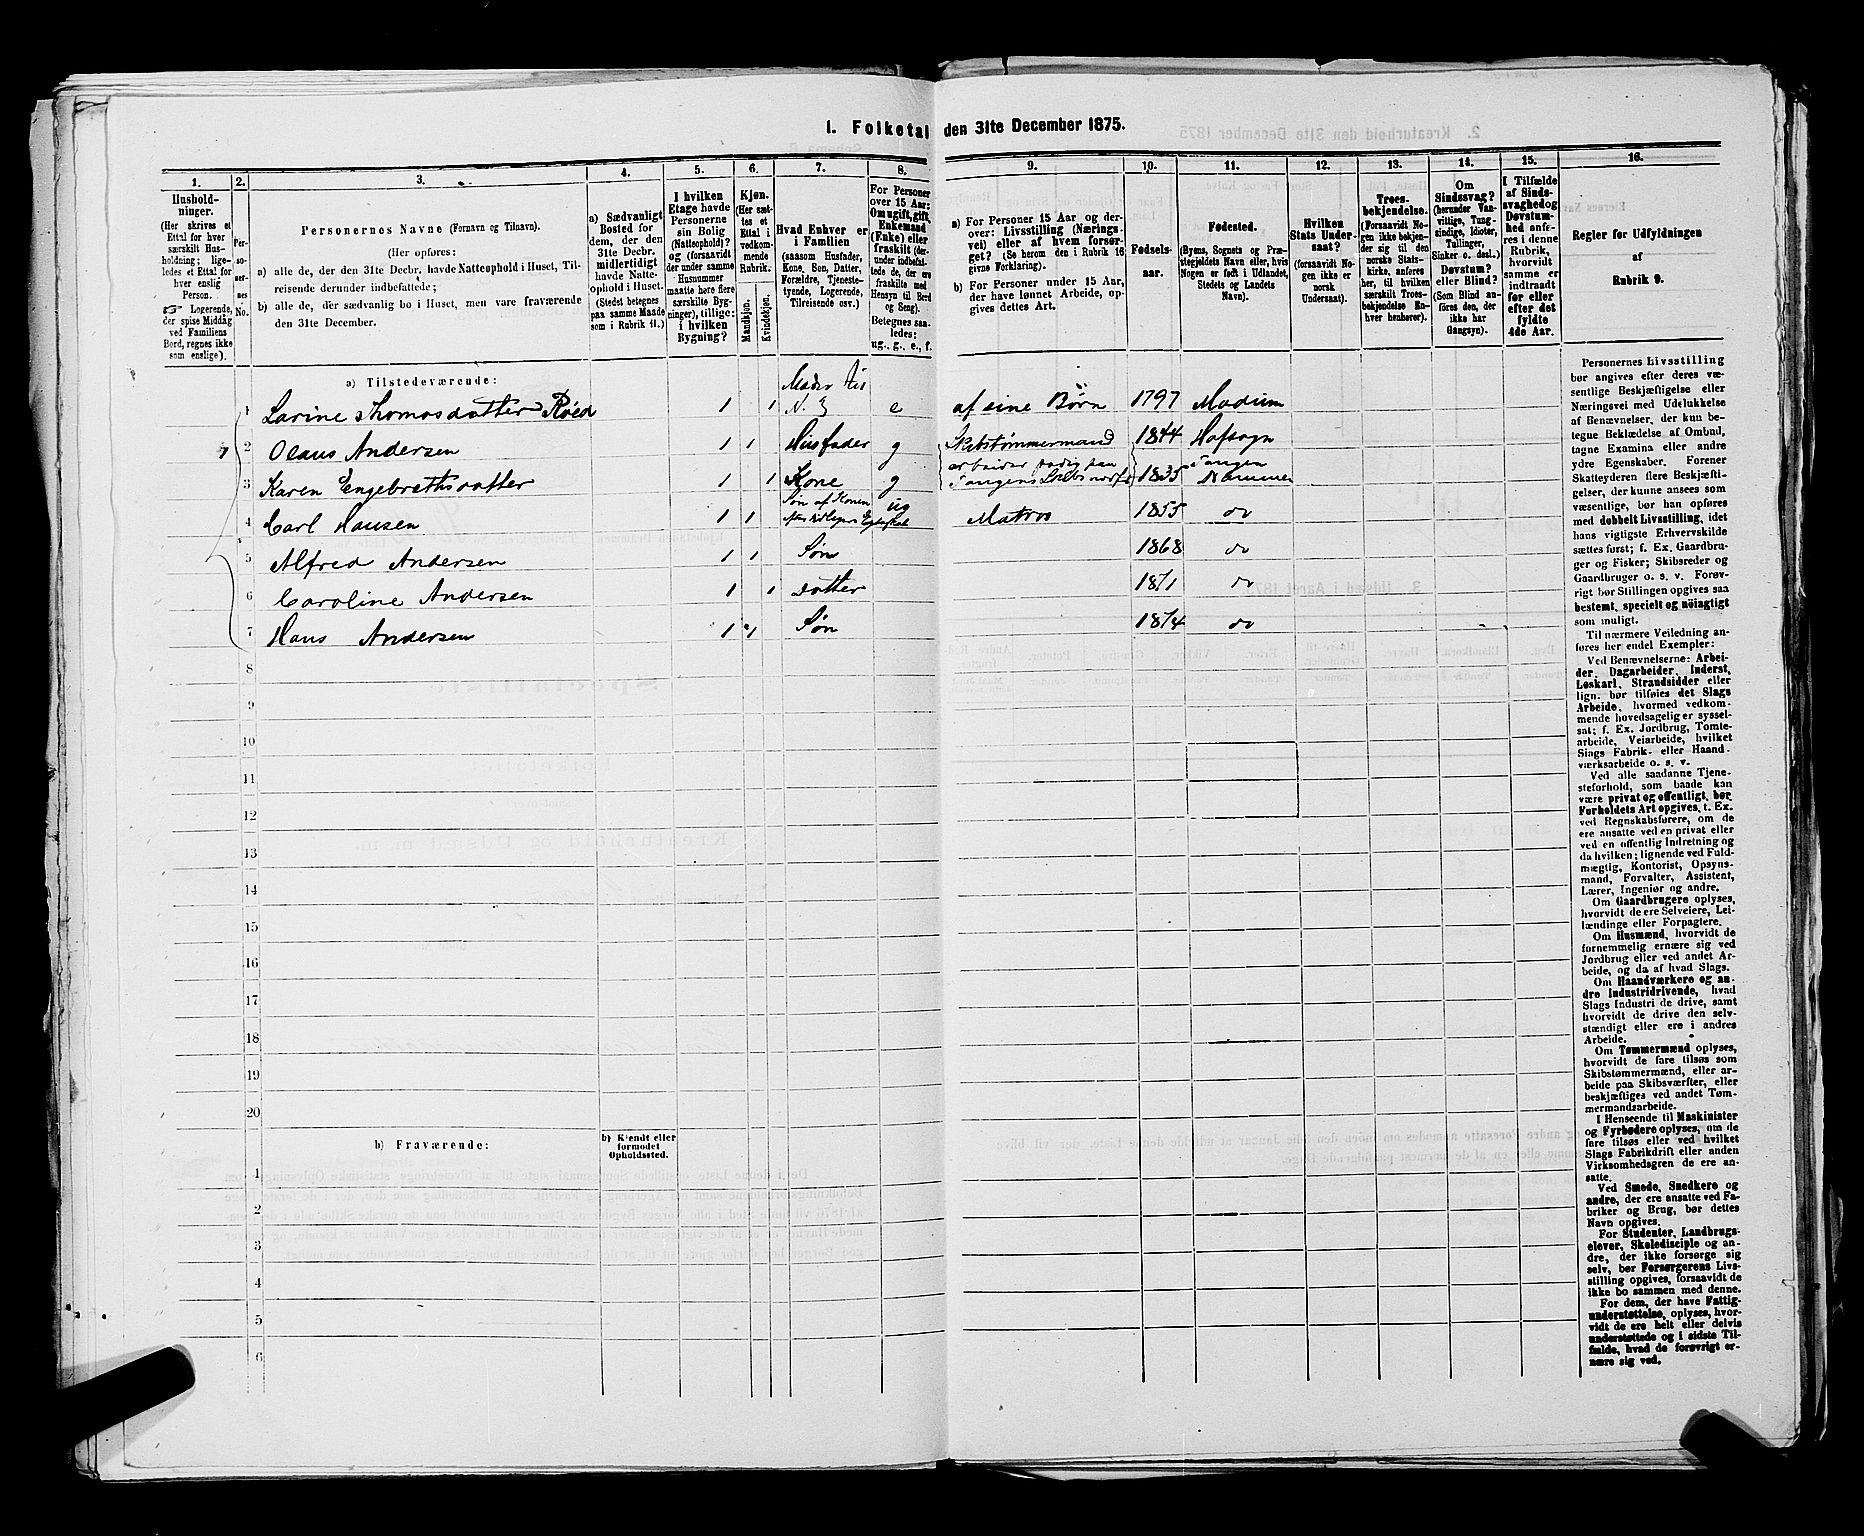 1. Folketal den 31te December 1875.
1. 2. 3. 4. 5. 6. 7. 8. 9. 10. 11. 12. 13. 14. 15. 16.
Hushold-
ninger.
(Her skrives et
Ettal for hver
særskilt Hus-
holdning; lige-
ledes et Ettal for
hver enslig
Person.
☞ Logerende,
der spise Middag
ved Familiens
Bord, regnes ikke
som enslige).
Per-
soner-
nes
No.
Personernes Navne (Fornavn og Tilnavn).
(Her opføres:
a) alle de, der den 31te Decbr. havde Natteophold i Huset, Til-
reisende derunder indbefattede;
b) alle de, der sædvanlig bo i Huset, men vare fraværende
den 31te December.
a) Sædvanligt
Bosted for
dem, der den
31te Decbr.
midlertidigt
havde Natte-
ophold i Huset.
(Stedet betegnes
paa samme Maade
som i Rubrik 11.)
I hvilken
Etage havde
Personerne
sin Bolig
(Natteophold)?
og (forsaavidt
der under samme
Husnummer
maatte høre flere
særskilte Byg-
ninger), tillige:
i hvilken
Bygning?
Kjøn.
(Her sæt-
tes et
Ettal i
vedkom-
mende
Rubrik.)
Mandkjøn.
Kvindekjøn.
Hvad Enhver er
i Familien
(saasom Husfader,
Kone, Søn, Datter,
Forældre, Tjeneste-
tyende, Logerende,
Tilreisende osv.)
For Personer
over 15 Aar:
Om ugift, gift,
Enkemand
(Enke) eller
fraskilt (der-
under indbefat-
tede de, der ere
fraskilte med
Hensyn til Bord
og Seng).
Betegnes saa-
ledes:
ug., g., e., f.
a) For Personer 15 Aar og der-
over: Livsstilling (Nærings-
vei) eller af hvem forsør-
get? (Se herom den i Rubrik 16
givne Forklaring).
b) For Personer under 15 Aar,
der have lønnet Arbeide, op-
gives dettes Art.
Fødsels-
aar.
Fødested.
(Byens, Sognets og Præ-
stegjeldets Navn eller, hvis
Nogen er født i Udlandet,
Stedets og Landets
Navn).
Hvilken
Stats Under-
saat?
(forsaavidt No-
gen ikke er
norsk
Undersaat).
Troes-
bekjendelse.
(Forsaavidt No-
gen ikke bekjen-
der sig til den
norske Stats-
kirke, anføres
her, til hvilken
særskilt Troes-
bekjendelse En-
hver henhører).
Om
Sindssvag?
(herunder Van-
vittige, Tung-
sindige, Idioter,
Tullinger,
Sinker o. desl.)
Døvstum?
eller Blind?
(Som Blind an-
føres den, der
ikke har
Gangsyn).
I Tilfælde
af Sinds-
svaghed og
Døvstum-
hed anfø-
res i denne
Rubrik,
hvorvidt
samme er
indtraadt
før eller
efter det
fyldte
4de Aar.
Regler for Udfyldningen
af
Rubrik 9.
a) Tilstedeværende:
1 Larine Thomasdatter Røed 1 1 Moder til N. 2 e af sine Børn 1797 Modum
2 Olaus Andersen 1 1 Husfader g Skibstømmermand 1844 Hafsogn
3 Karen Engebrettsdatter 1 1 Kone g arbeider 1835 Tangen
4 Carl Hansen 1 1 Søn af Konen ug Matros 1855 do
5 Alfred Andersen 1 1 Søn 1868 do
6 Caroline Andersen 1 1 Datter 1871 do
7 Hans Andersen 1 1 Søn 1874 do
8
9
10
11
12
13
14
15
16
17
18
19
20
b) Fraværende:
b) Kjendt eller
formodet
Opholdssted.
1
2
3
4
5
6
Personernes Livsstilling
bør angives efter deres væ-
sentlige Beskjæftigelse eller
Næringsvei med Udelukkelse
af Benævnelser, der kun be-
tegne Beklædelse af Ombud,
tagne Examina eller andre
ydre Egenskaber. Forener
Skatteyderen flere Beskjæfti-
gelser, der kunne ansees som
væsentlige, bør han opføres
med dobbelt Livsstilling, idet
hans vigtigste Erhvervskilde
sættes først; f. Ex. Gaardbru-
ger og Fisker; Skibsreder og
Gaardbruger o. s. v. Forøv-
rigt bør Stillingen opgives saa
bestemt, specielt og nöiagtigt
som muligt.
Til nærmere Veiledning an-
føres her endel Exempler:
Ved Benævnelserne: Arbei-
der, Dagarbeider, Inderst,
Løskarl, Strandsidder eller
lign. bør tilføies det Slags
Arbeide, hvormed vedkom-
mende hovedsagelig er syssel-
sat; f. Ex. Jordbrug, Tomte-
arbeide, Veiarbeide, hvilket
Slags Fabrik- eller Haand-
værksarbeide o. s. v.
Ved alle saadanne Tjene-
steforhold, som baade kan
være privat og offentligt, bør
Forholdets Art opgives, t. Ex.
ved Regnskabsførere, om de
ere ansatte ved en privat eller
ved en offentlig Indretning og
da hvilken; lignende ved Fuld-
mægtig, Kontorist, Opsyns-
mand, Forvalter, Assistent,
Lærer, Ingeniør og andre.
Om Gaardbrugere oplyses,
hvorvidt de ere Selveiere, Lei-
lændinge eller Forpagtere.
Om Husmænd, hvorvidt de
fornemmelig ernære sig ved
Jordbrug eller ved andet Ar-
beide, og da af hvad Slags.
Om Haandværkere og an-
dre Industridrivende, hvad
Slags Industri de drive, samt
hvorvidt de drive den selv-
stændigt eller ere i andres
Arbeide.
Om Tømmermænd oplyses,
hvorvidt de fare tilsøs som
Skibstømmermænd, eller ar-
beide paa Skibsværfter, eller
beskjæftiges ved andet Tøm-
mermandsarbeide.
I Henseende til Maskinister
og Fyrbødere oplyses, om de
fare tilsøs eller ved hvilket
Slags Fabrikdrift eller anden
Virksomhedsgren de ere an-
satte.
Ved Smede, Snedkere og
andre, der ere ansatte ved Fa-
briker og Brug, bør dettes
Navn opgives.
For Studenter, Landbrugs-
elever, Skoledisciple og an-
dre, der ikke forsørge sig
selv, bør Forsørgerens Livs-
stilling opgives, forsaavidt de
ikke bo sammen med denne.
For dem, der have Fattig-
understøttelse, oplyses, hvor-
vidt de ere helt eller delvis
understøttede og i sidste Til-
fælde, hvad de forøvrigt er-
nære sig ved.